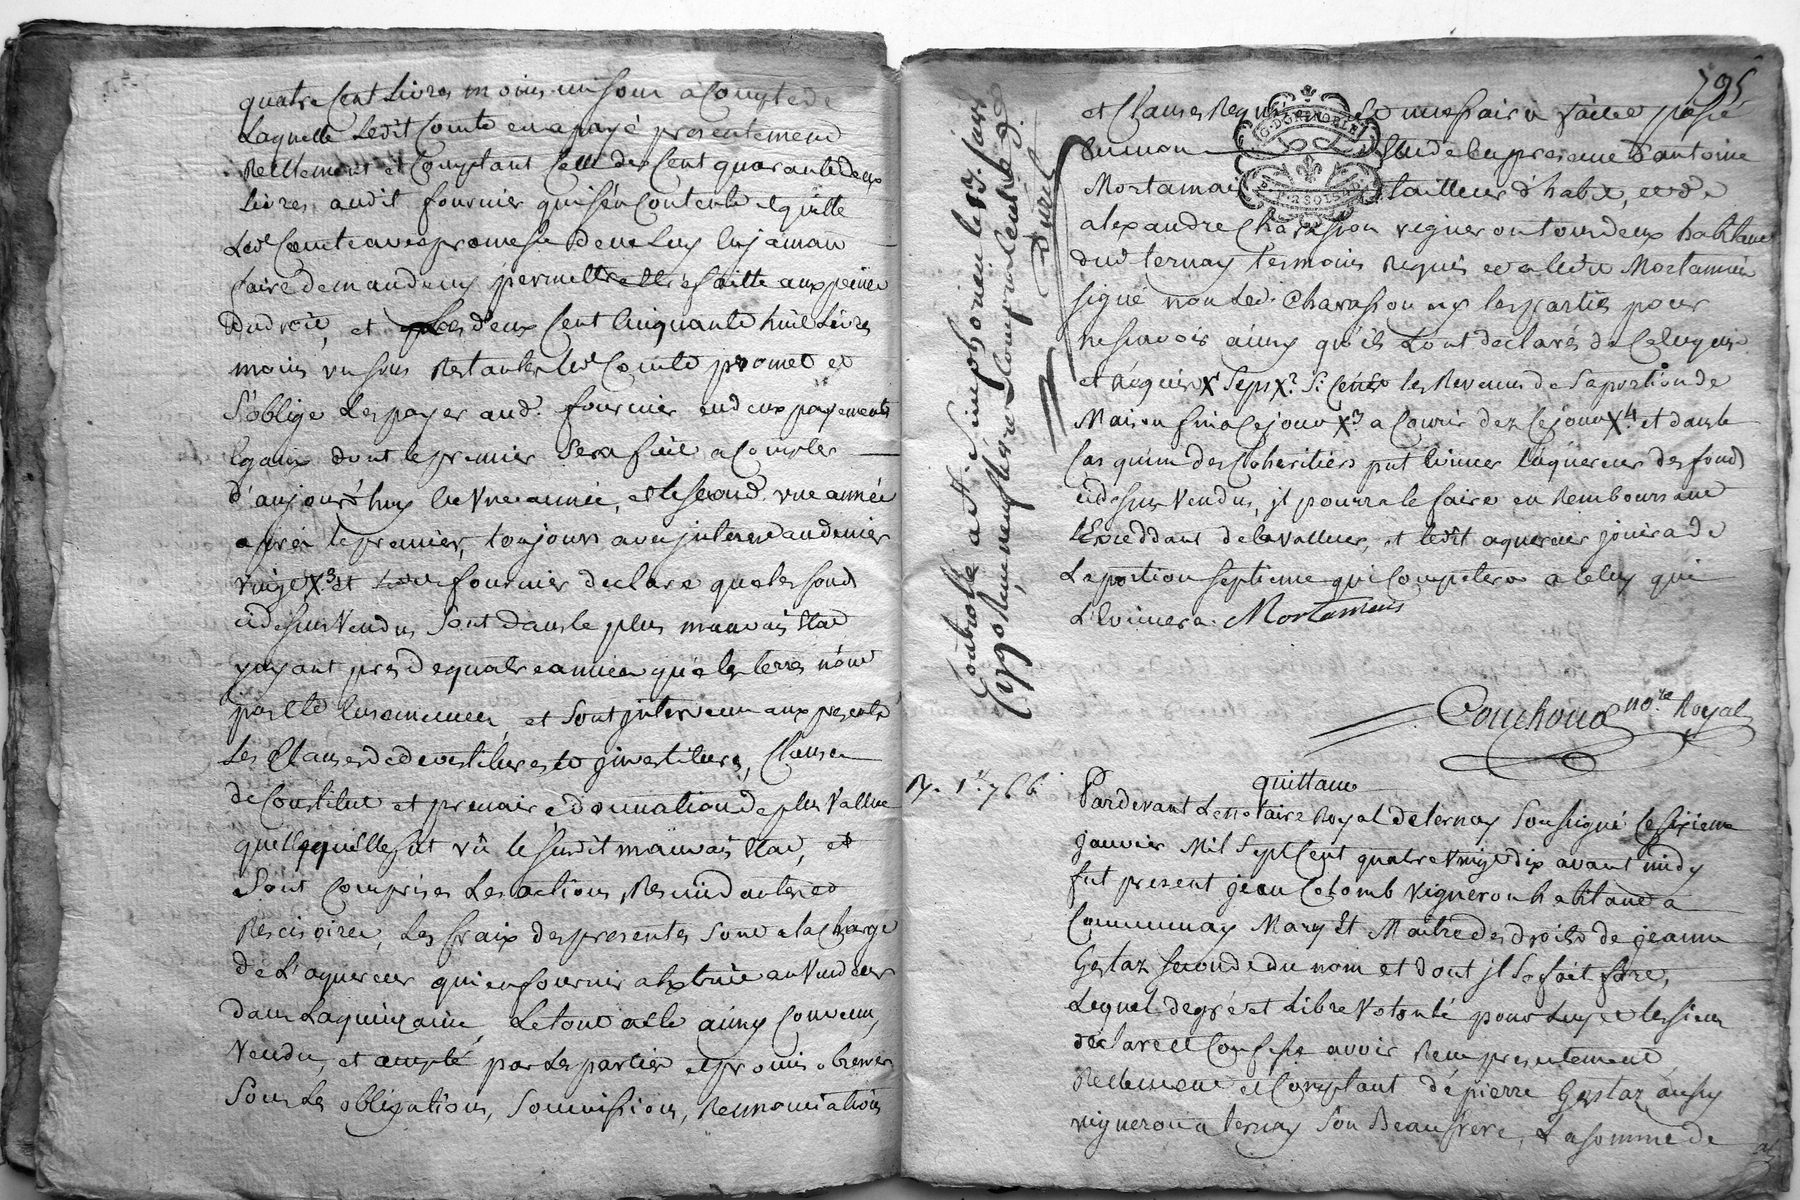 quatre Cent Livres moins un sou a Compte de
Laquelle Ledit Comte en a payé presentement
Reellement et Comptant Celle de Cent quarante deux
Livres audit fournier qui s'en Contente et quitte
Led Comte avec promesse de ne luy en jamais
faire demande ny permettre etre faitte aux peines
du droit, et les deux Cent Cinquante huit Livres
moins un sous Restantes led Comte promet et
S'oblige Les payer aud. fournier en deux payements
Egaux dont le premier sera fait a Compter
d'aujourd'huy en Une année, et le second une année
après le premier, toujours avec interets au denier
vingt X3 et led fournier declare que les fonds
cidessus Vendus Sont dans le plus mauvais Etat
y ayant près de quatre années que les terres n'ont
pas été Ensemencées, et Sont intervenu aux presentes
Les Clauses de devestitures et investitures, Clauses
de Constitut et precaire, donnation de plus Vallue
quelle quelle soit vû le susdit mauvais Etat, et
Sont Comprises Les actions Rescindantes et
Rescisoires, Les fraix des presentes sont a la Charge
de L'aquereur qui en fournira Extrait au Vendeur
dans La quinzaine, Le tout a été ainsy Convenu,
Vendu, et accepté par Les parties et promis observer
Sous Les obligations, Soumissions, Renonciations
795
et Clauses Requises
G. D. GRENOBLE
Etude En presence d'antoine
Mortamais tailleur d'habit, et de
alexandre Charassion vigneron tous deux habitans
dud ternay temoins Requis et a ledit Mortamais
signé non led. Charassion ny les parties pour
ne scavoir ainsy qu'ils L'ont declarés de Ce enquis
et Requis X Sept X2 les Revenus de sa portion de
Maison X3 a Courir dez Ce jour X4 et dans le
Cas qu'un des Coheritiers put Evincer l'aquereur des fonds
cidessus Vendus, il pourra le faire en Remboursant
L'Exceddant de la Valleur, et ledit aquereur jouira de
La portion septieme qui Competera a Celuy qui
L'Evincera. Mortamais
Couchoud no.re Royal
Controllé a St Simphorien le 13 janv
1790 Reçu
quittance
Pardevant Le notaire Royal de ternay soussigné le sixieme
janvier Mil Sept Cent quatre vingt dix avant midy
fut present jean Colomb vigneron habitant a
Communay Mary Et Maitre des droits de jeanne
Gestaz seconde du nom et dont il se fait fort,
Lequel de gré et Libre Volonté pour Luy et les siens
declare et Confesse avoir Reçu presentement
Reellement et Comptant de pierre Gestaz aussy
vigneron a ternay Son Beaufrere, La somme de